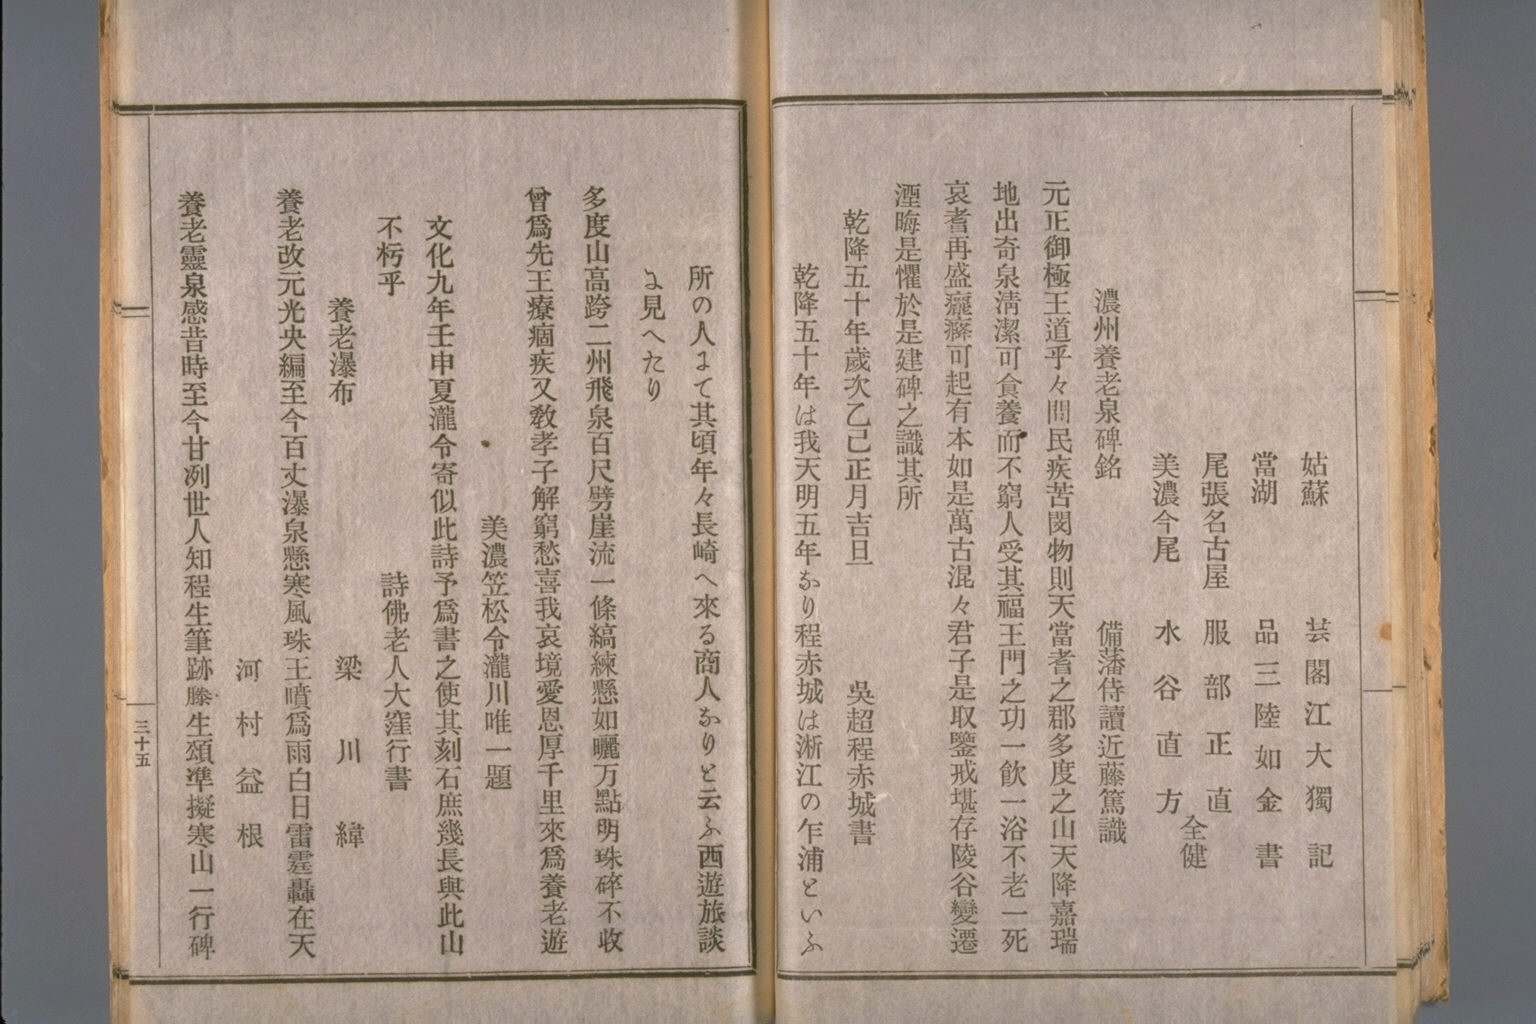 姑蘇　芸閣江大獨記
當湖　品三陸如金書
尾張名古屋　服部正直
仝健
美濃今尾　水谷直方
濃州養老泉碑銘　備藩侍讀近藤篤識
元正御極王道乎々問民疾苦閔物則天當耆之郡多度之山天降嘉瑞
地出奇泉淸潔可食養而不窮人受其福王門之功一飮一浴不老一死
哀耆再盛癃癃可起有本如是萬古混々君子是取鑒戒堪存陵谷變遷
湮晦是懼於是建碑之識其所
乾降五十年歲次乙己正月吉旦　吳超程赤城書
乾降五十年は我天明五年なり程赤城は淅江の乍浦といふ
所の人まて其頃年々長崎へ來る商人なりと云ふ西遊旅談
よ見へたり
多度山高跨二州飛泉百尺劈崖流一條縞練懸如曬万點明珠碎不收
曾爲先王療痼疾又敎孝子解窮愁喜我哀境愛恩厚千里來爲養老遊
美濃笠松令瀧川唯一題
文化九年壬申夏瀧令寄似此詩予爲書之使其刻石庶幾長與此山
不朽乎　詩佛老人大窪行書
養老瀑布　梁川緯
養老改元光央編至今百丈瀑泉懸寒風珠王噴爲雨白日雷霆轟在天
河村益根
養老靈泉感昔時至今甘冽世人知程生筆跡滕生頌準擬寒山一行碑
三十五